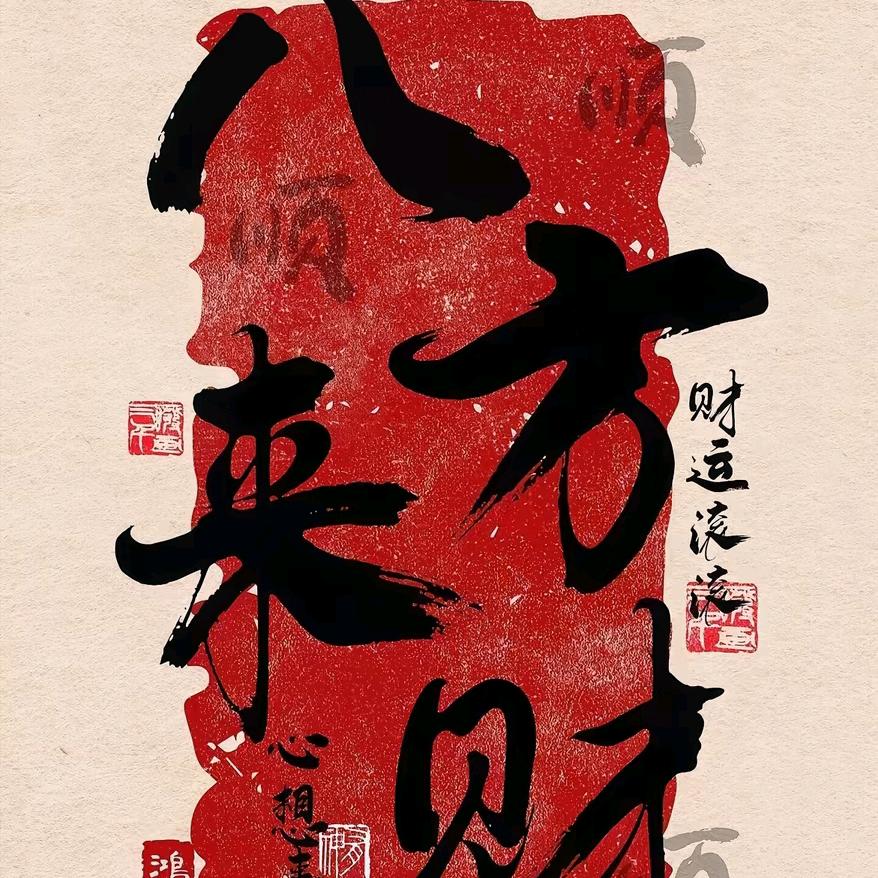 八方来财
财运滚滚
心想事
顺
顺
顺
鸿